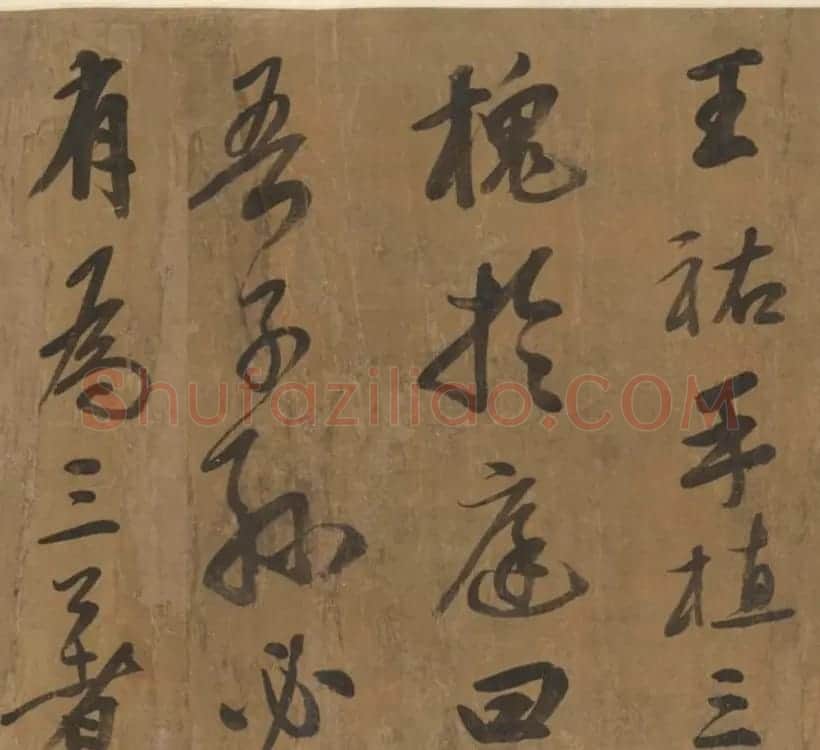 王祐手植三
槐於庭曰
吾子孫必
有為三公者
Shufaziliao.COM